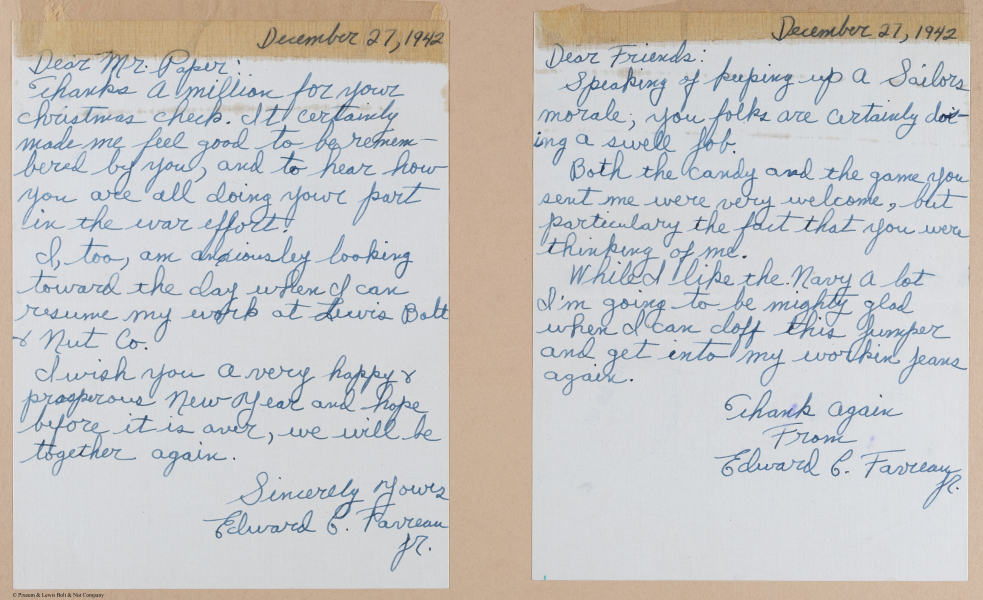 December 27, 1942
Dear Mr. Paper:
Thanks a million for your
christmas check. It certainly
made me feel good to be remem-
bered by you, and to hear how
you are all doing your part
in the war effort.
I, too, am anxiously looking
toward the day when I can
resume my work at Lewis Bolt
& Nut Co.
I wish you a very happy &
prosperous New Year and hope
before it is over, we will be
together again.
Sincerely Yours
Edward C. Favreau
Jr.
© Peseum & Lewis Bolt & Nut Company
December 27, 1942
Dear Friends:
Speaking of keeping up a Sailors
morale; you folks are certainly do-
ing a swell job.
Both the candy and the game you
sent me were very welcome, but
particulary the fact that you were
thinking of me.
While I like the Navy a lot
I'm going to be mighty glad
when I can doff this jumper
and get into my workin jeans
again.
Thank again
From
Edward C. Favreau
Jr.